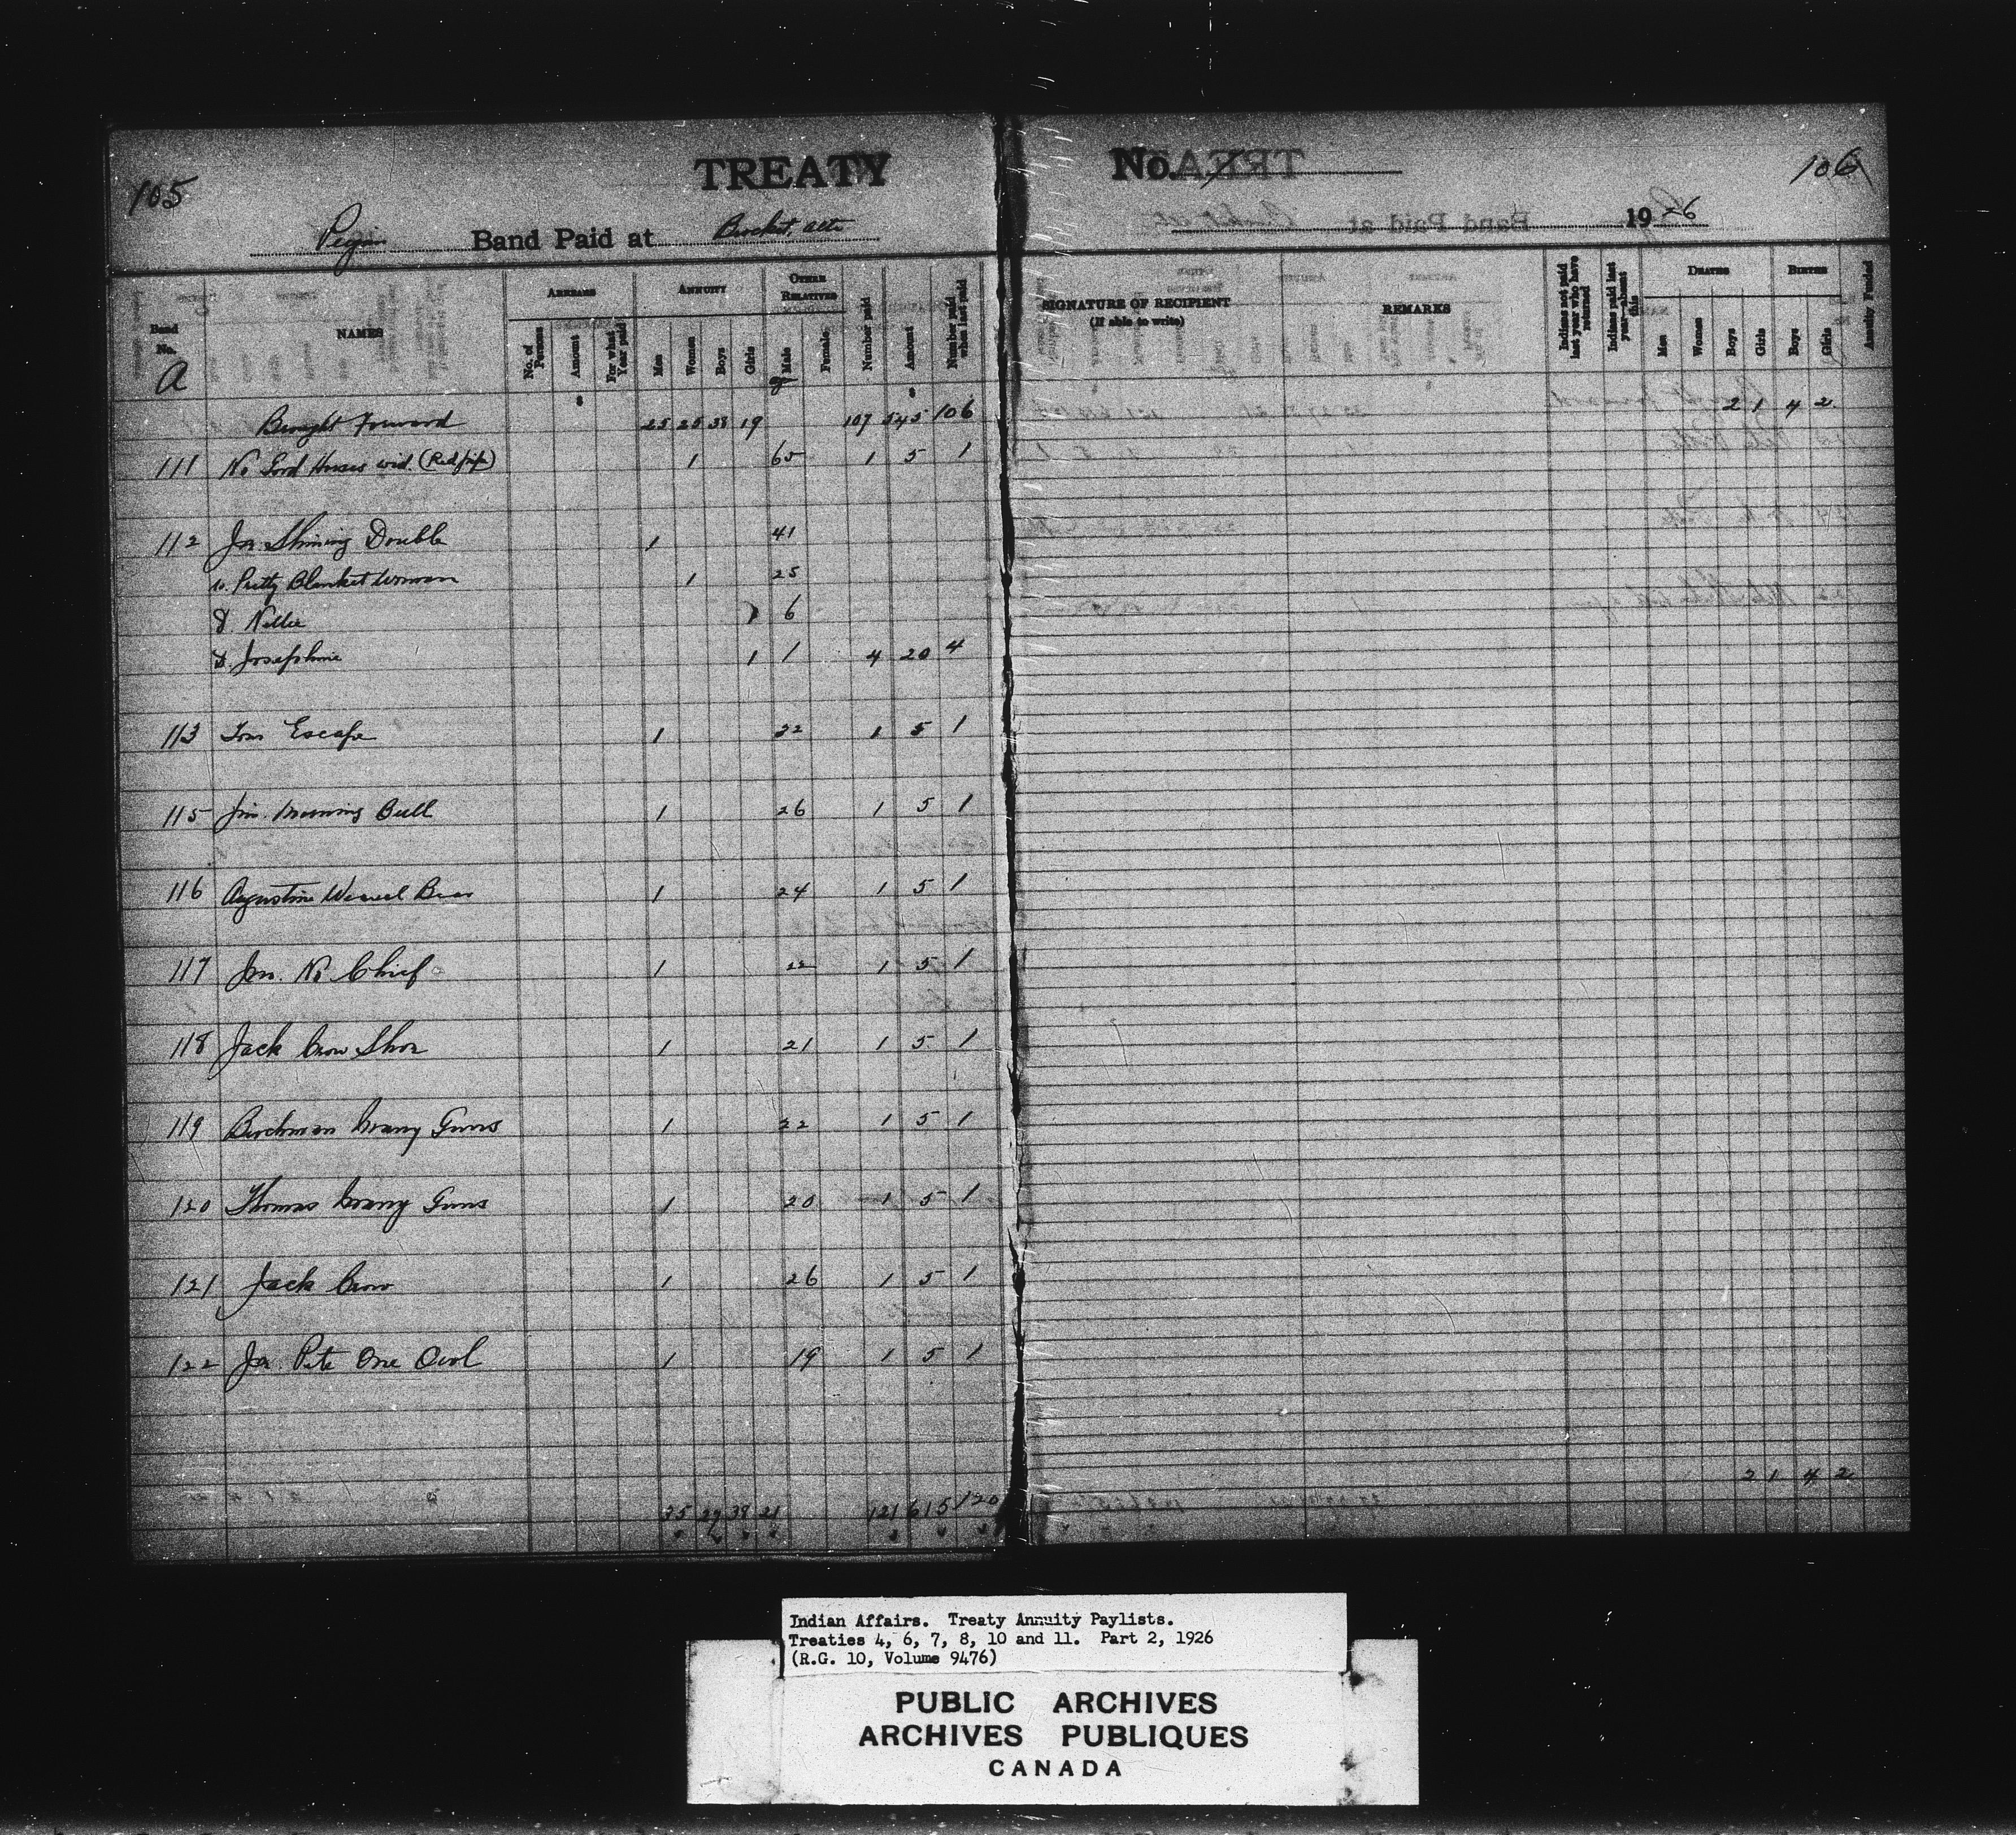 105
TREATY No. 7
106
Peigan Band Paid at Brocket, Alta 1926
Band No. NAMES ARREARS ANNUITY OTHER RELATIVES Number paid Amount Number paid when last paid SIGNATURE OF RECIPIENT (If able to write) REMARKS Indians not paid last year who have returned Indians paid last year—absent this DEATHS BIRTHS Annuity Funded
No. of Persons Amount For what Year paid Men Women Boys Girls Male Female Men Women Boys Girls Boys Girls
A
$ $
Brought Forward 25 25 38 19 107 545 106 2 1 4 2
111 No Hoofed Horses wid. (Red pipe) 1 65 1 5 1
112 Joe Shining Double 1 41
w. Pretty Blanket Woman 1 25
d. Nellie 1 6
d. Josephine 1 1 4 20 4
113 Tom Escape 1 22 1 5 1
115 Jim Morning Bull 1 26 1 5 1
116 Augustine Weasel Bear 1 24 1 5 1
117 Jim No Chief 1 22 1 5 1
118 Jack Crow Shoe 1 21 1 5 1
119 Birchman Many Guns 1 22 1 5 1
120 Thomas Many Guns 1 20 1 5 1
121 Jack Crow 1 26 1 5 1
122 Joe Pete One Owl 1 19 1 5 1
35 27 38 21 121 615 120 2 1 4 2
Indian Affairs. Treaty Annuity Paylists.
Treaties 4, 6, 7, 8, 10 and 11. Part 2, 1926
(R.G. 10, Volume 9476)
PUBLIC ARCHIVES
ARCHIVES PUBLIQUES
CANADA